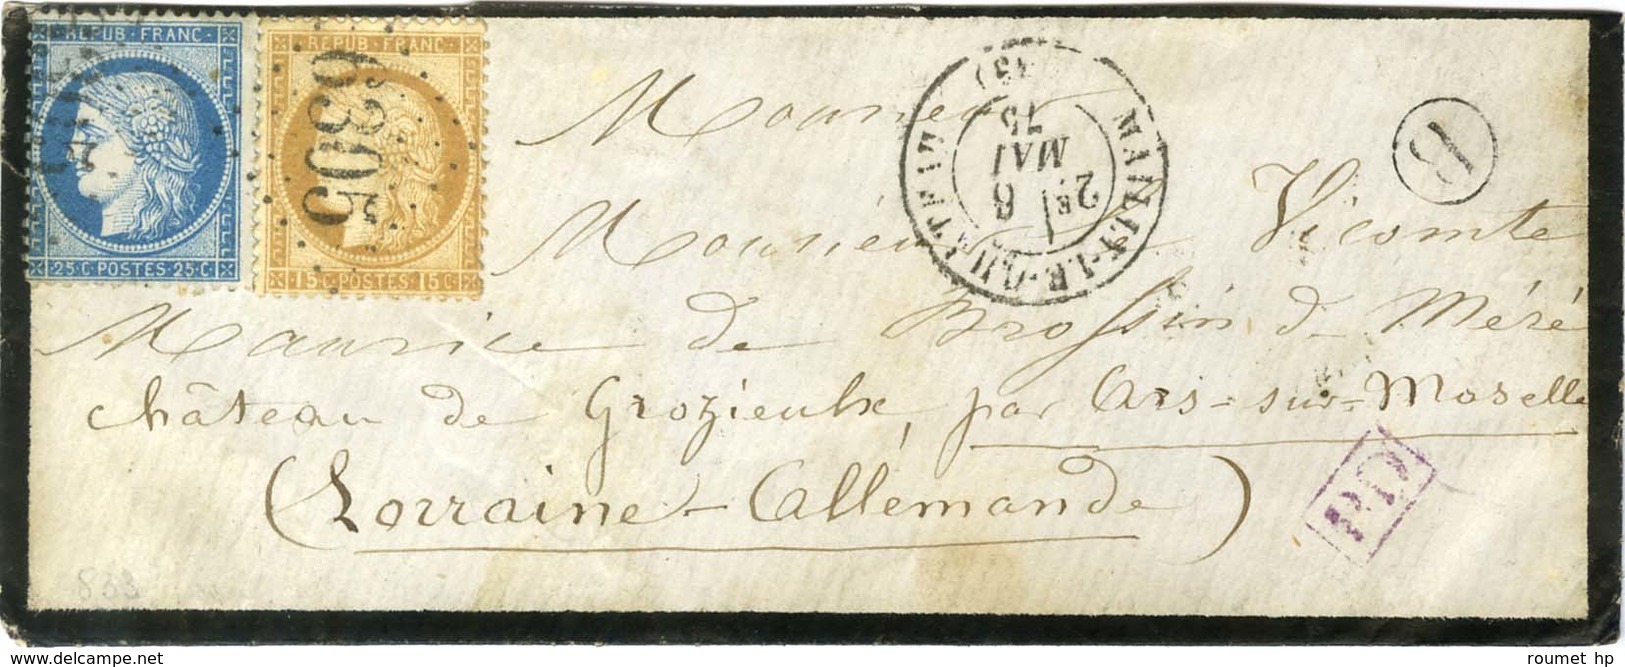 REPUB·FRANC·
25·C·POSTES·25·C·
REPUB·FRANC·
15·C·POSTES·15·C·
6305
MAMIT-LE-QUETTEAU
2E
6
MAI
75
B
Monsieur
Monsieur le Vicomte
Maurice de Brossin de Méré
château de Grozieulx, par Ars-sur-Moselle
(Lorraine-Allemande)
PD
208
roumet hp